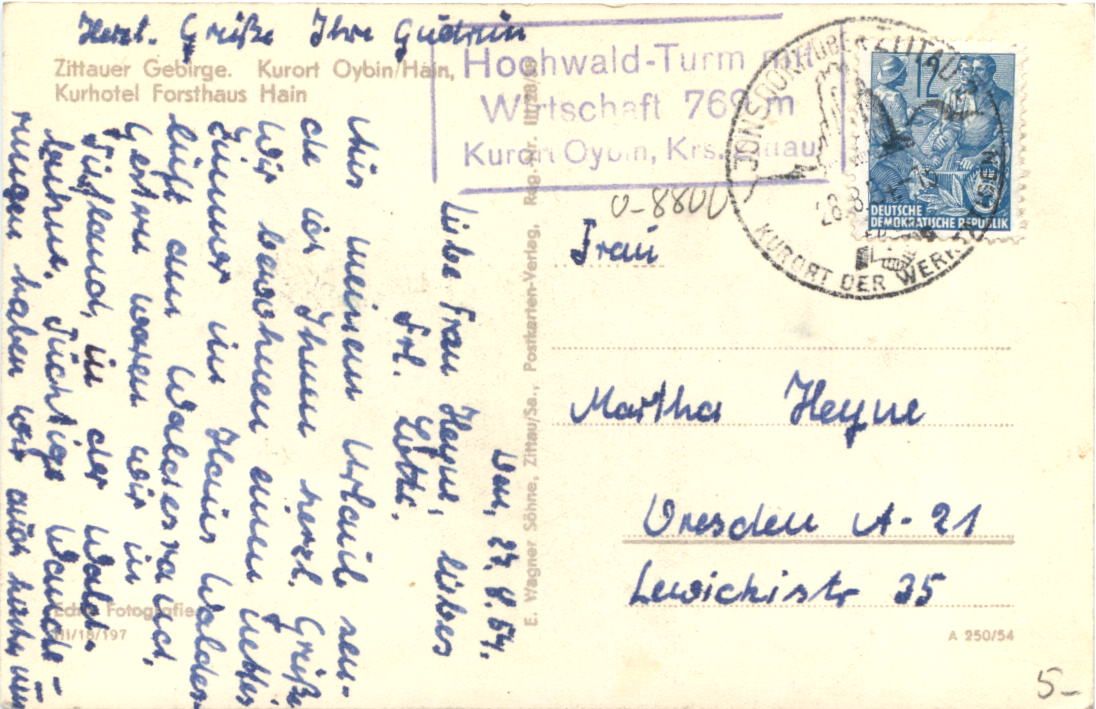 Herzl. Grüße Ihre Gudrun
Zittauer Gebirge. Kurort Oybin/Hain,
Kurhotel Forsthaus Hain
Hochwald-Turm mit
Wirtschaft 760 m
Kurort Oybin, Krs. Zittau
Den, 27. 8. 54.
Liebe Frau Heyne, liebes
Frl. Lotte.
Aus meinem Urlaub sen-
de ich Ihnen herzl. Grüße
Wir bewohnen ein nettes
Zimmer im Haus Waldes-
luft am Waldesrand,
Gestern waren wir in
in der Wald-
Tüchtige Wande-
rungen haben wir auch hinter uns
Echte Fotografie
III/18/197
E. Wagner Söhne, Zittau/Sa., Postkarten-Verlag, Reg.-Nr.
0-8800
JONSDORF ÜBER ZITTAU
28.8.54
KURORT DER WERK
12
DEUTSCHE
DEMOKRATISCHE REPUBLIK
Frau
Martha Heyne
Dresden A-21
Lewickistr 35
A 250/54
5-